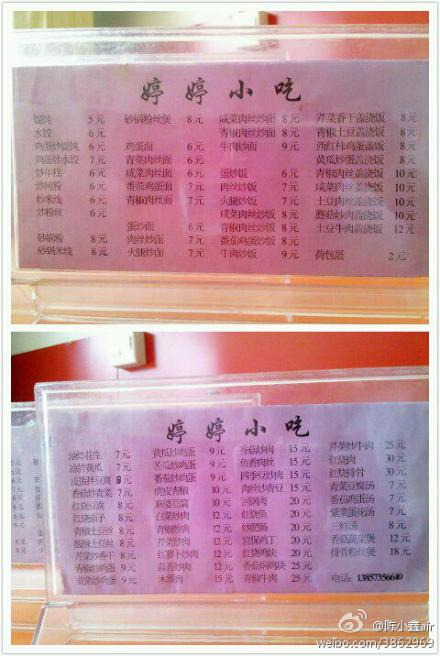 婷婷小吃
馄饨 5元
水饺 6元
鸡蛋炒馄饨 6元
鸡蛋炒水饺 7元
炒年糕 6元
炒河粉 6元
炒米线 6元
炒粉丝 6元
砂锅粉 8元
砂锅米线 8元
砂锅粉丝煲 8元
鸡蛋面 6元
青菜肉丝面 6元
咸菜肉丝面 6元
番茄鸡蛋面 7元
青椒肉丝面 7元
蛋炒面 6元
肉丝炒面 7元
火腿炒面 7元
咸菜肉丝炒面 8元
青椒肉丝炒面 8元
牛肉炒面 9元
蛋炒饭 6元
肉丝炒饭 7元
火腿炒饭 7元
咸菜肉丝炒饭 8元
青椒肉丝炒饭 8元
番茄鸡蛋炒饭 8元
牛肉炒饭 9元
芹菜香干盖浇饭 8元
青椒土豆盖浇饭 8元
西红柿鸡蛋盖浇饭 8元
黄瓜炒蛋盖浇饭 8元
青椒肉丝盖浇饭 10元
咸菜肉丝盖浇饭 10元
土豆肉丝盖浇饭 10元
蘑菇炒肉盖浇饭 10元
土豆牛肉盖浇饭 12元
荷包蛋 2元
婷婷小吃
油炸花生 7元
凉拌黄瓜 7元
皮蛋拌豆腐 8元
香菇炒青菜 7元
红烧豆腐 8元
红烧茄子 8元
青椒土豆丝 8元
酸辣土豆丝 8元
芹菜炒香干 8元
青椒炒鸡蛋 9元
韭菜炒鸡蛋 9元
黄瓜炒鸡蛋 9元
苦瓜炒鸡蛋 9元
番茄炒鸡蛋 9元
虎皮青椒 10元
麻婆豆腐 10元
白菜炒肉 12元
青椒炒肉 12元
芹菜炒肉 12元
红萝卜炒肉 12元
蒜苔炒肉 12元
木须肉 15元
香菇炒肉 15元
鱼香肉丝 15元
四季豆炒肉 15元
肉丝炒青豆 15元
回锅肉 20元
红烧鱼 20元
炒肥肠 20元
宫保鸡丁 20元
红烧鸡块 20元
香菇焖鸡块 25元
青椒牛肉 25元
芹菜炒牛肉 25元
红烧肉 30元
红烧排骨 30元
青菜豆腐汤 7元
番茄鸡蛋汤 7元
紫菜蛋花汤 7元
三鲜汤 8元
香菇蔬菜煲 12元
排骨粉丝煲 18元
电话:13857356640
@陈小鑫air
weibo.com/3862969